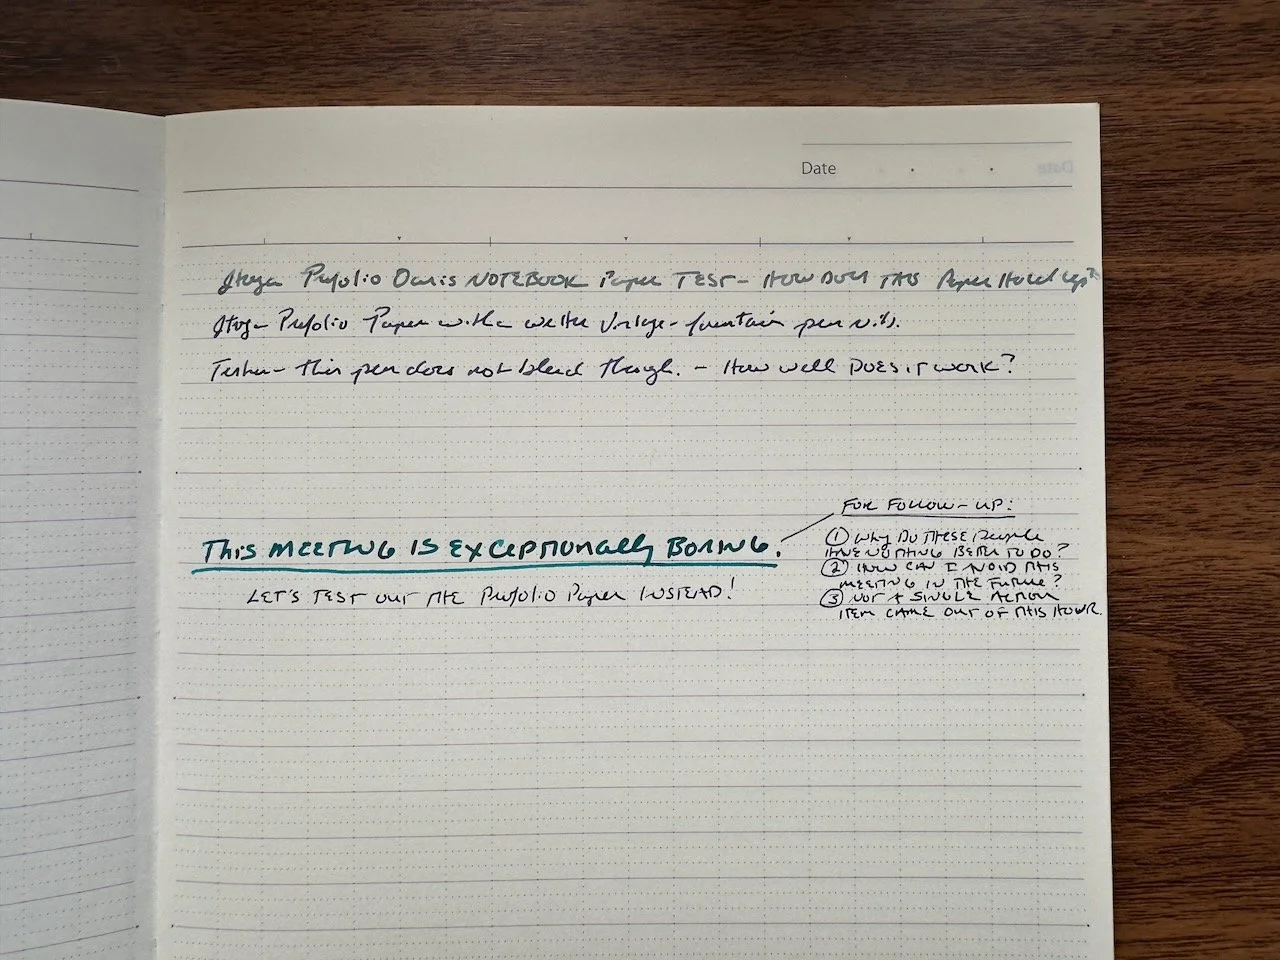 Date
Itoya Profolio Oasis NOTEBOOK Paper TEST - HOW DOES THIS Paper Hold Up?
Itoya Profolio Paper with a wetter vintage fountain pen nib.
Tester - this pen does not bleed through. - How well Does it work?
FOR FOLLOW-UP:
This MEETING IS EXCEPTIONally BORING.
① Why Do THESE People
HAVE NOTHING BETTER TO DO?
② HOW CAN I AVOID THIS
MEETING IN THE FUTURE?
③ NOT A SINGLE ACTION
ITEM CAME OUT OF THIS HOUR.
LET'S TEST OUT THE Profolio Paper INSTEAD!